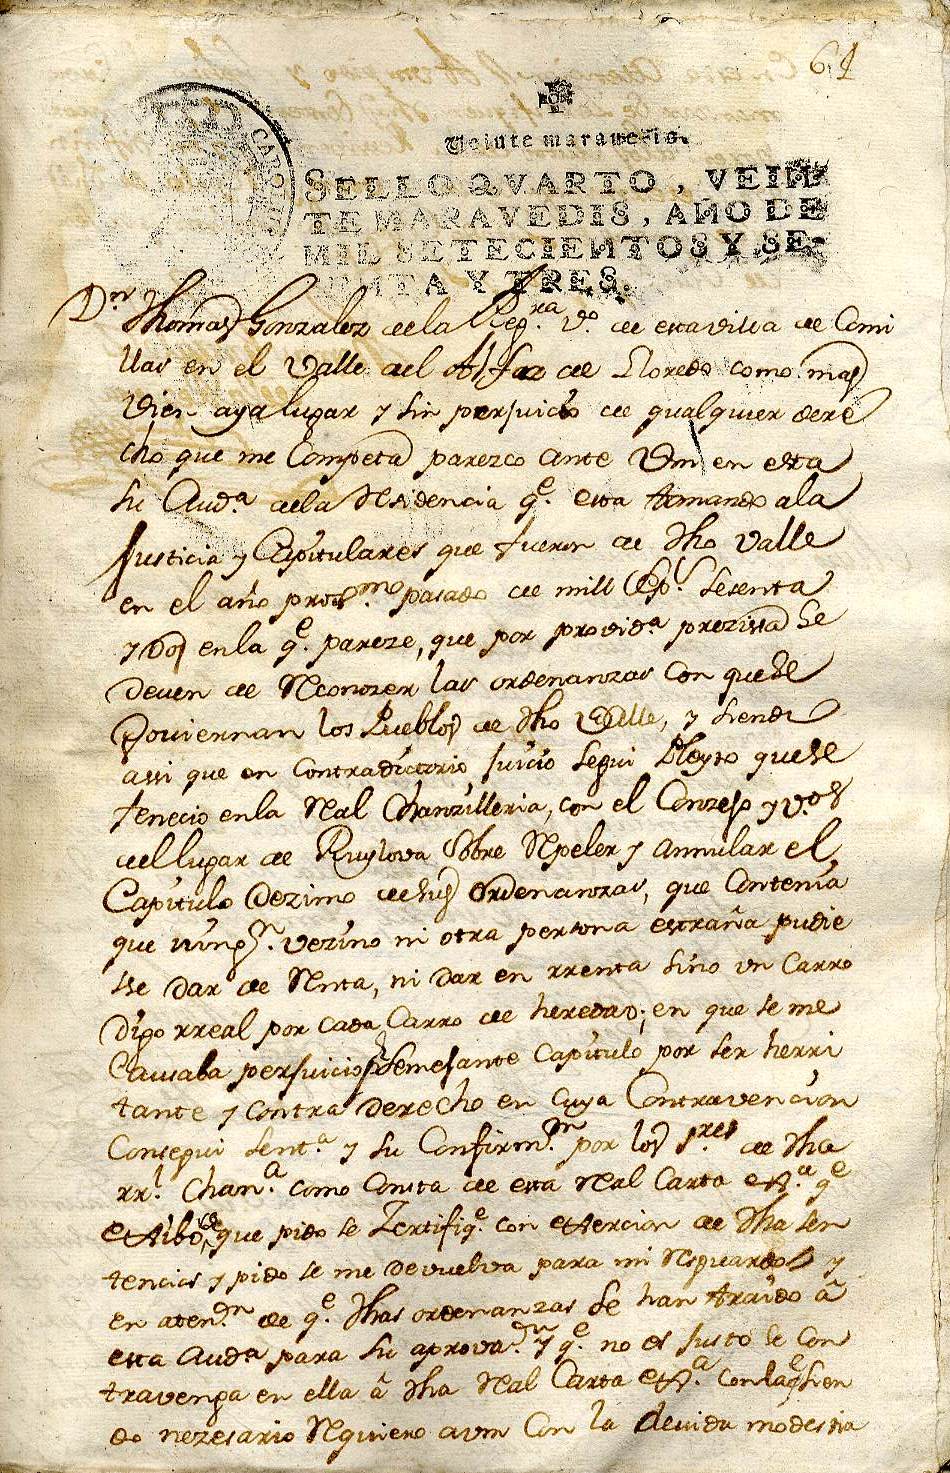 61
Veinte maravedis.
SELLO QVARTO, VEIN
TE MARAVEDIS, AÑO DE
MIL SETECIENTOS Y SE-
NTA Y TRES.
CAROLUS
Dn Thomas Gonzalez de la Reg.ra v.o de esta villa de Comi
llas en el Valle del Alfoz de Lloredo como mas
vien aya lugar y sin perjuicio de qualquier dere
cho que me Competa parezco ante Vm en esta
su Aud.a de la Residencia q.e esta tomando a la
Justicia y Capitulares que fueron de dho Valle
en el año prox.mo pasado de mill sesenta
y dos en la q.e pareze, que por provid.a prezissa se
deven de Reconozer las ordenanzas con que se
Goviernan los Pueblos de dho Valle, y siendo
assi que en contradictorio juicio segui Pleyto que se
fenecio en la Real Chanzilleria, con el Conzejo y v.os
del lugar de Ruylova sobre Repeler y annular el
Capitulo Dezimo de sus Ordenanzas, que Contenia
que ning.n vezino ni otra persona estraña pudie
sse dar de Renta, ni dar en rrenta sino un Carro
digo rreal por cada Carro de heredad; en que se me
Causaba perjuicio semejante Capitulo por ser herri
tante y contra derecho en cuya Contravencion
Consegui sent.a y su Confirm.on por los s.res de dha
rr.l Chan.a como Consta de esta Real Carta ex.a q.e
exsibo, que pido se Zertifiq.e con exsercion de dha sen
tencias y pido se me devuelva para mi Resguardo y
en aten.on de q.e dhas ordenanzas se han traido à
esta Aud.a para su aprova.on y q.e no es justo se con
travenga en ella à dha Real Carta ex.a con la q.e sien
do nezesario Requiero a vm Con la devida modestia